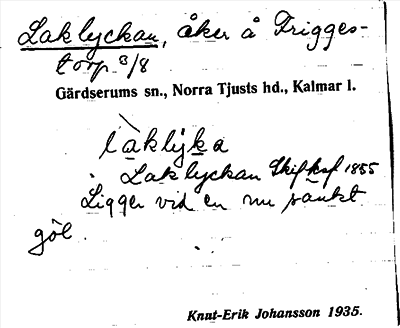 Laklyckan, åker å Frigges-
torp 3/8
Gärdserums sn., Norra Tjusts hd., Kalmar l.
làklyka
Laklyckan Skifksf 1855
Ligger vid en nu sänkt
göl.
Knut-Erik Johansson 1935.